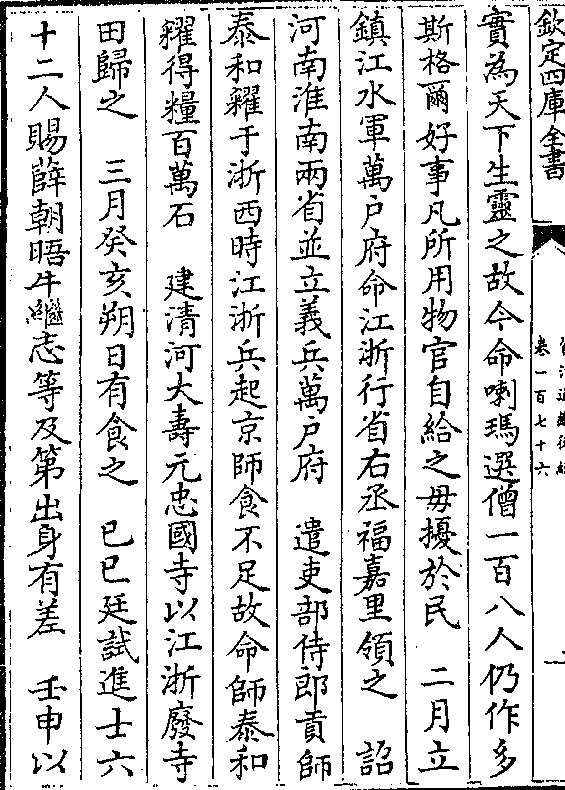 欽定四庫全書
卷一百七十六
實為天下生靈之故今命喇瑪選僧一百八人仍作多
斯格爾好事凡所用物官自給之毋擾於民　二月立
鎮江水軍萬户府命江浙行省右丞福嘉里領之　詔
河南淮南兩省並立義兵萬户府　遣吏部侍郎貢師
泰和糴于浙西時江浙兵起京師食不足故命師泰和
糴得糧百萬石　建清河大壽元忠國寺以江浙廢寺
田歸之　三月癸亥朔日有食之　已巳廷試進士六
十二人賜薛朝晤牛繼志等及第出身有差　壬申以